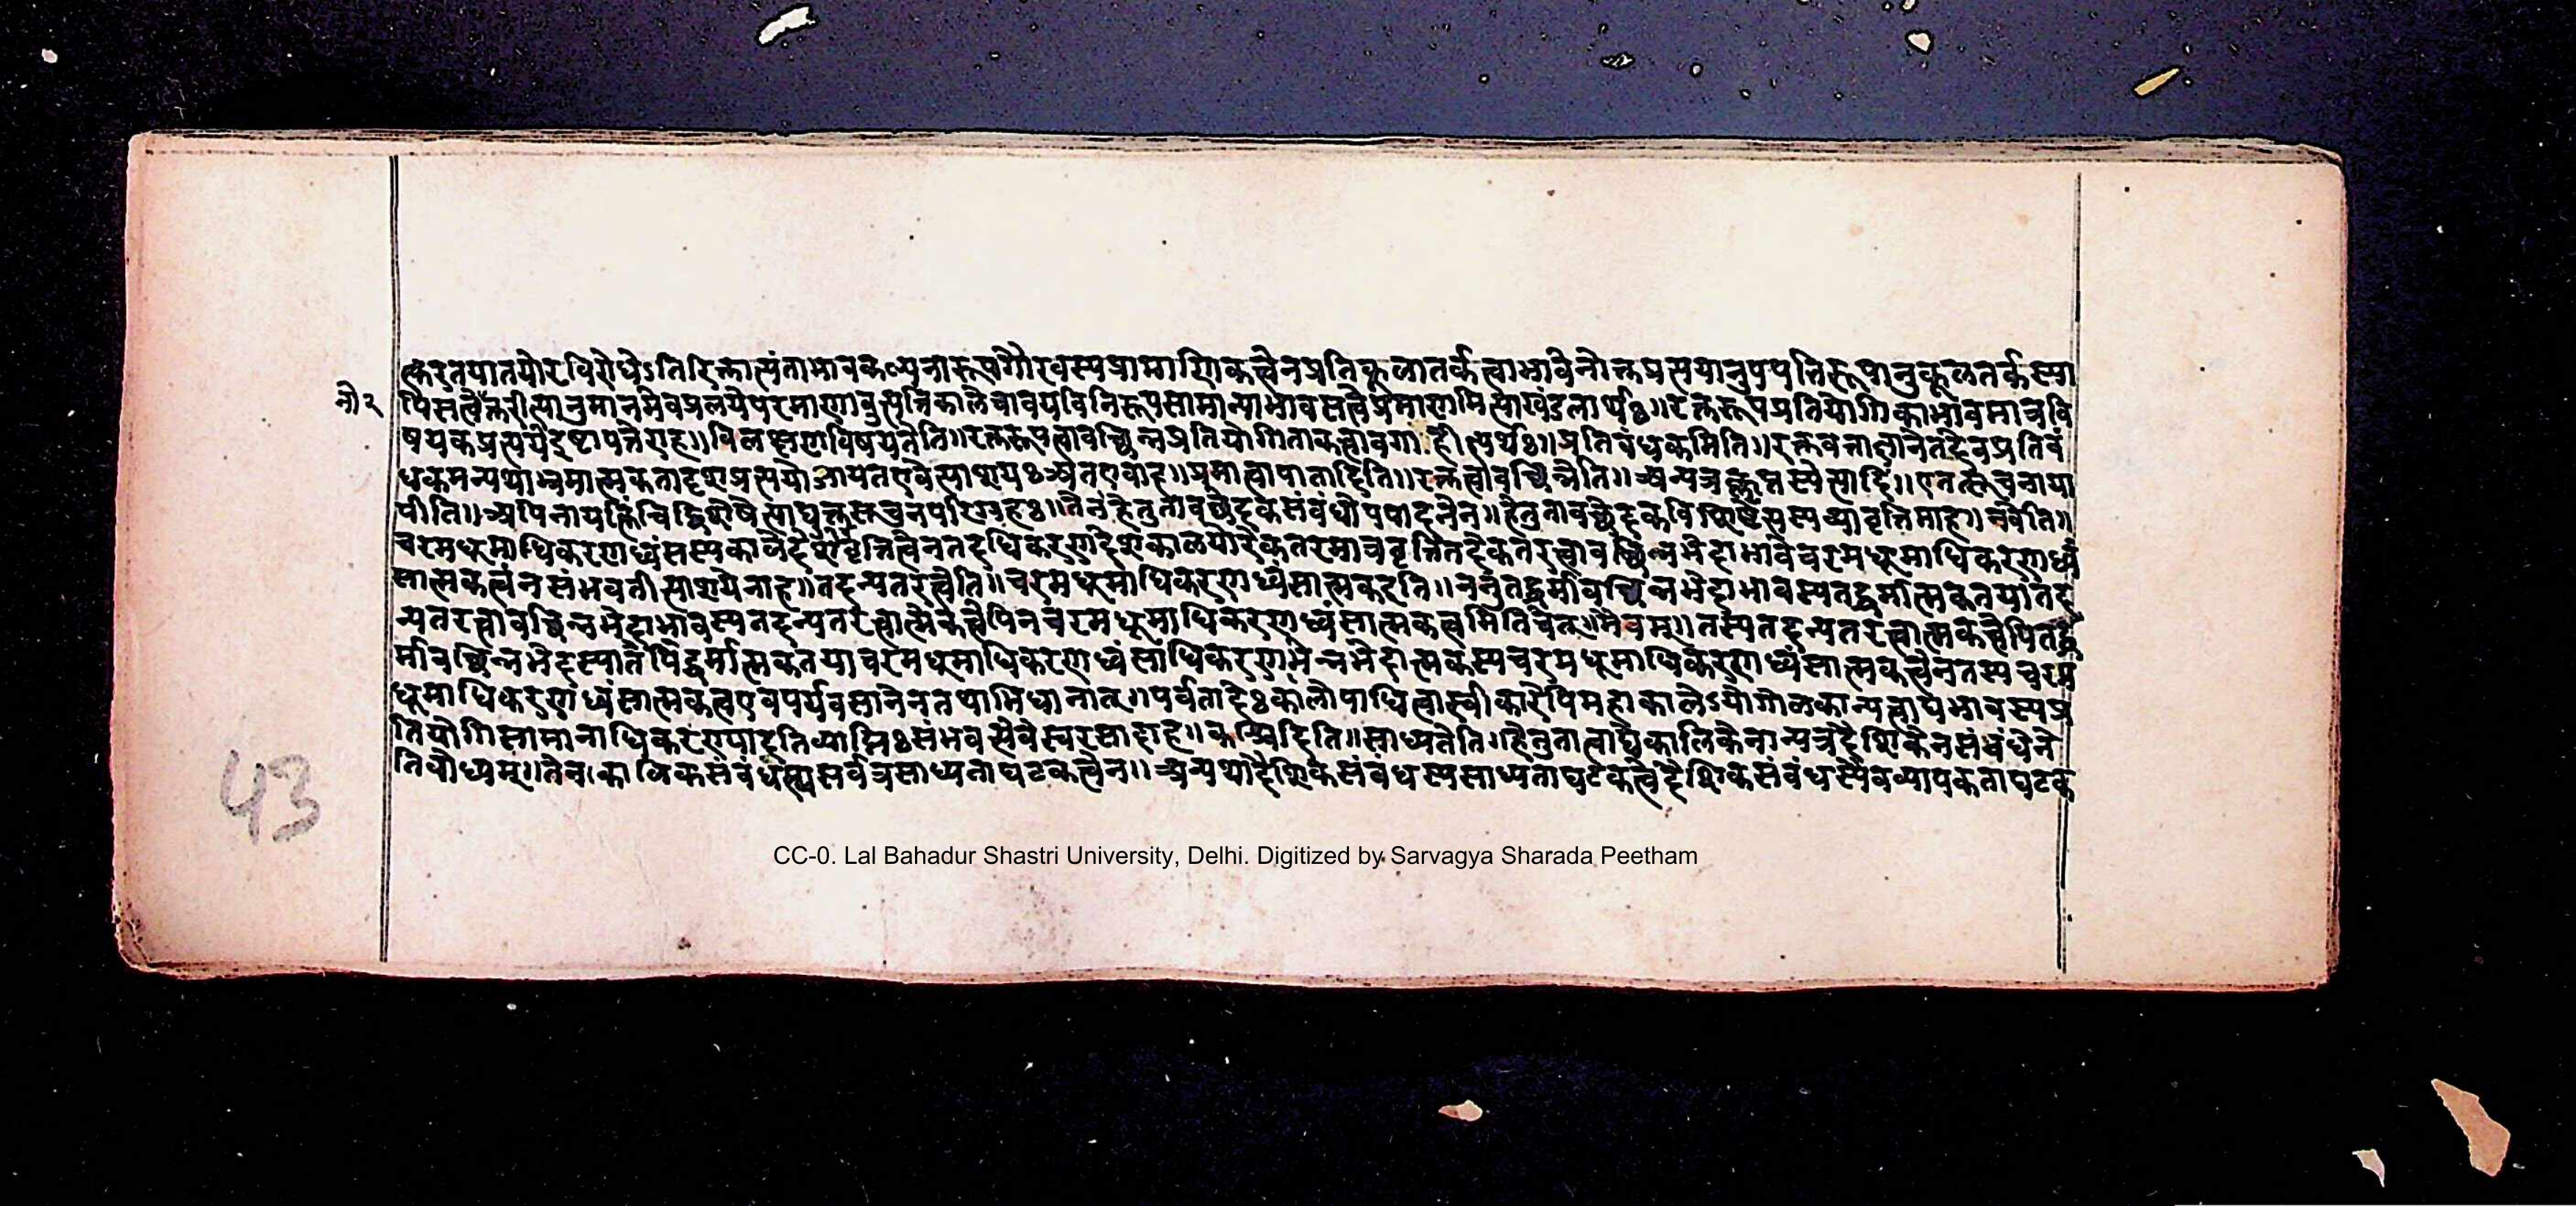 त्करतयातयोरविरोधेऽतिरिक्तात्यंताभावकल्पनारूपगौरवस्यप्रामाणिकत्वेनप्रतिकूलातर्कत्वाभावेनोक्तप्रत्ययानुपपत्तिरूपानुकूलतर्कस्या
नौ२
पिसत्वेत्करीत्यानुमानमेवप्रलयेपरमाणावुत्पत्तिकालेचावयविनिरूपसामान्याभावसत्वेप्रमाणमित्याखंडलार्थः॥रक्तरूपप्रतियोगिकाभावमात्रवि
षयकप्रत्ययेइष्टापत्तेराह॥विलक्षणविषयतेति॥रक्तरूपत्वावच्छिन्नप्रतियोगिताकत्वावगाहीत्यर्थः॥प्रतिबंधकमिति॥रक्तवत्ताज्ञानेतदेवप्रतिबं
धकमन्यथाभ्रमात्मकतादृशप्रत्ययोजायतएवेत्याशयःअतएवाह॥प्रमात्वापातादिति॥रक्तत्वावच्छिन्नेति॥अन्यत्रक्लृप्तस्येत्यादि॥एतत्सूचनाया
पीति॥अपिनायत्किंचिद्विशेषेत्याद्युक्तसूचनपरिग्रहः॥तेनहेतुतावच्छेदकसंबंधोपपादनेन॥हेतुतावच्छेदकविशिष्टसत्वस्यव्यावृत्तिमाह॥नचेति॥
चरमधूमाधिकरणध्वंसस्यकालेदेशेवृत्तित्वेनतदधिकरणदेशकालयोरेकतरमात्रवृत्तितदेकतरत्वावच्छिन्नभेदाभावेचरमधूमाधिकरणध्वं
सात्मकत्वंनसंभवतीत्याशयेनाह॥तदन्यतरत्वेति॥चरमधूमाधिकरणध्वंसात्मकइति॥ननुतद्धर्मावच्छिन्नभेदाभावस्यतद्धर्मात्मकतयातद
न्यतरत्वावच्छिन्नभेदाभावस्यतदन्यतरत्वात्मकत्वेपिनचरमधूमाधिकरणध्वंसात्मकत्वमितिचेत्॥मैवम्॥तस्यतदन्यतरत्वात्मकत्वेपितद्ध
र्मावच्छिन्नभेदस्यातेपिद्धर्मात्मकतयाचरमधूमाधिकरणध्वंसाधिकरणभिन्नभेदात्मकस्यचरमधूमाधिकरणध्वंसात्मकत्वेनतस्यचरम
धूमाधिकरणध्वंसात्मकत्वएवपर्यवसानेनतथाभिधानात्॥पर्वतादेःकालोपाधित्वास्वीकारेपिमहाकालेऽयोगोलकान्यत्वाद्यभावस्यप्र
तियोगिसामानाधिकरण्यादतिव्याप्तिःसंभवत्येवेत्यस्वरसादाह॥क्वचिदिति॥साध्यतेति॥हेतुतात्वाद्यकालिकेनान्यत्रदैशिकेनसंबंधेने
तिबोध्यम्॥तेनकालिकसंबंधस्यसर्वत्रसाध्यताघटकत्वेन॥अन्यथादैशिकसंबंधस्यसाध्यताघटकत्वेदैशिकसंबंधस्यैवव्यापकताघटक
43
CC-0. Lal Bahadur Shastri University, Delhi. Digitized by Sarvagya Sharada Peetham